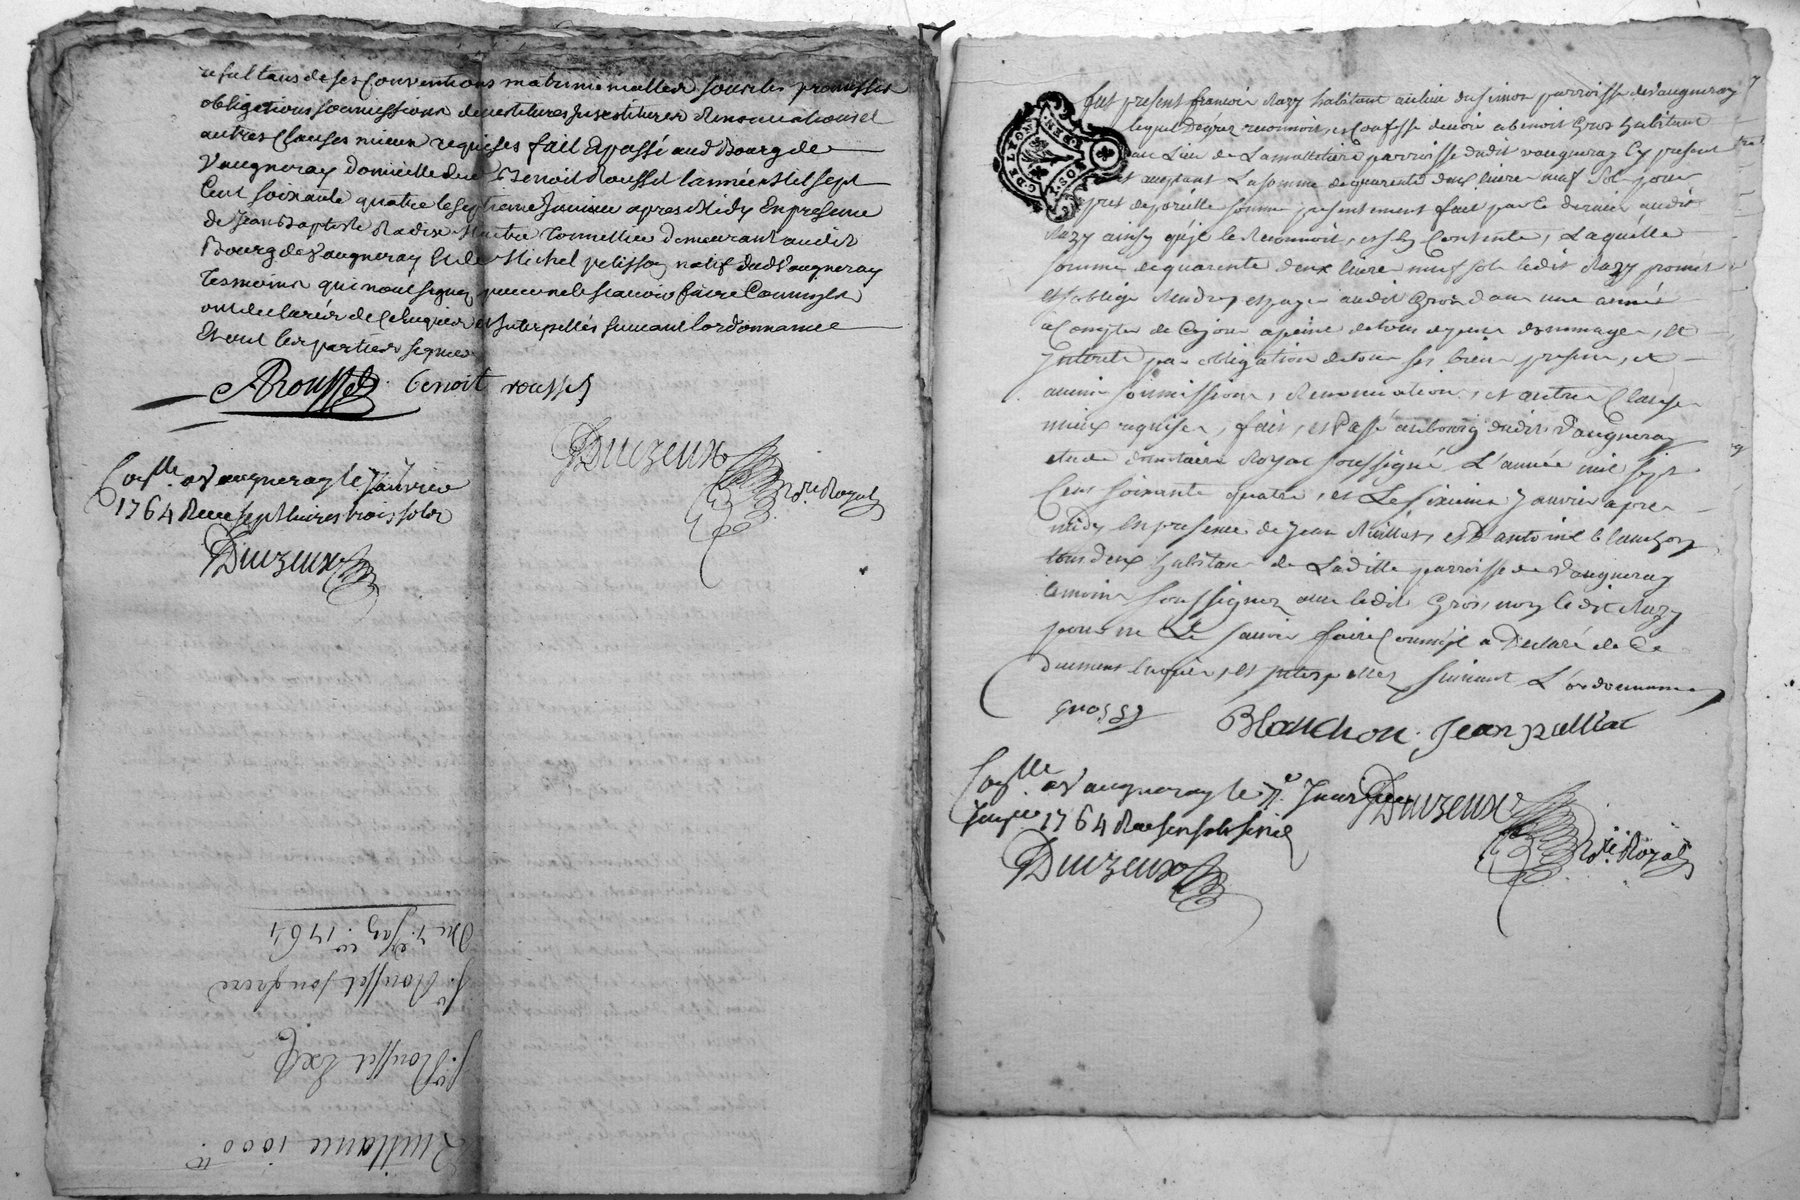 resultans de ses Conventions matrimonialles sous les promesses
obligations soumissions de restitures renonciations et
autres Clauses mieux requises fait et passé aud Bourg de
Vaugneray domicille dud Sr Benoit Rousset l'année Mil sept
Cent soixante quatre le septieme Janvier apres Midy En presence
de Jean Baptiste Maitre demeurant audit
Bourg de Vaugneray Et de Michel pelisson natif dud Vaugneray
Tesmoins qui n'ont signez pour ne le scavoir faire Comme ils
ont declarés de ce Enquis et Interpellés suivant l'ordonnance
Et ont les parties signées
Rousset benoit rousset
Duizeux
nre Royal
Conlle a Vaugneray le 7 Janvier
1764 Receu sept livres trois sols
Duizeux
Quittance 1000 ll
Sr Rousset
Sr Rousset son frere
Du 7e Janvier 1764
G DE LYON
fut present francois Razy habitant au lieu du simon parroisse de Vaugneray
lequel De gré reconnoit, et Confesse devoir a benoit Gros habitant
au Lieu de Lamalletiere parroisse dudit vaugneray Cy present
et aceptant La somme de quarente deux livres neuf Sols pour
pret de pareille somme presentement fait par Ce dernier audit
Razy ainsy qu'il le Reconnoit, et s'en Contente, Laquelle
somme de quarente deux livres neuf sols ledit Razy promet
et s'oblige Rendre, et payer audit Gros dans une année
a Compter de Ce jour a peine de tous depens dommages, et
Interets par obligation de tous ses biens presens, et
avenir soumissions, Renonciations, et autres Clauses
mieux requises, fait, et Passé au bourg dudit Vaugneray
etude du notaire Royal soussigné L'année mil sept
Cent soixante quatre, et Le sixieme Janvier apres
midy En presence de Jean et d'antoine blanchon
tous deux habitans de Ladite parroisse de Vaugneray
temoins soussignez avec ledit Gros, non ledit Razy
pour ne Le savoir faire Comme il a Declaré de Ce
duement Enquis, et Interpellez suivant L'ordonnance
gros
Blanchon. Jean
Conlle a Vaugneray le 7e Janvier
1764 Receu six sols
Duizeux
Duizeux
nre Royal